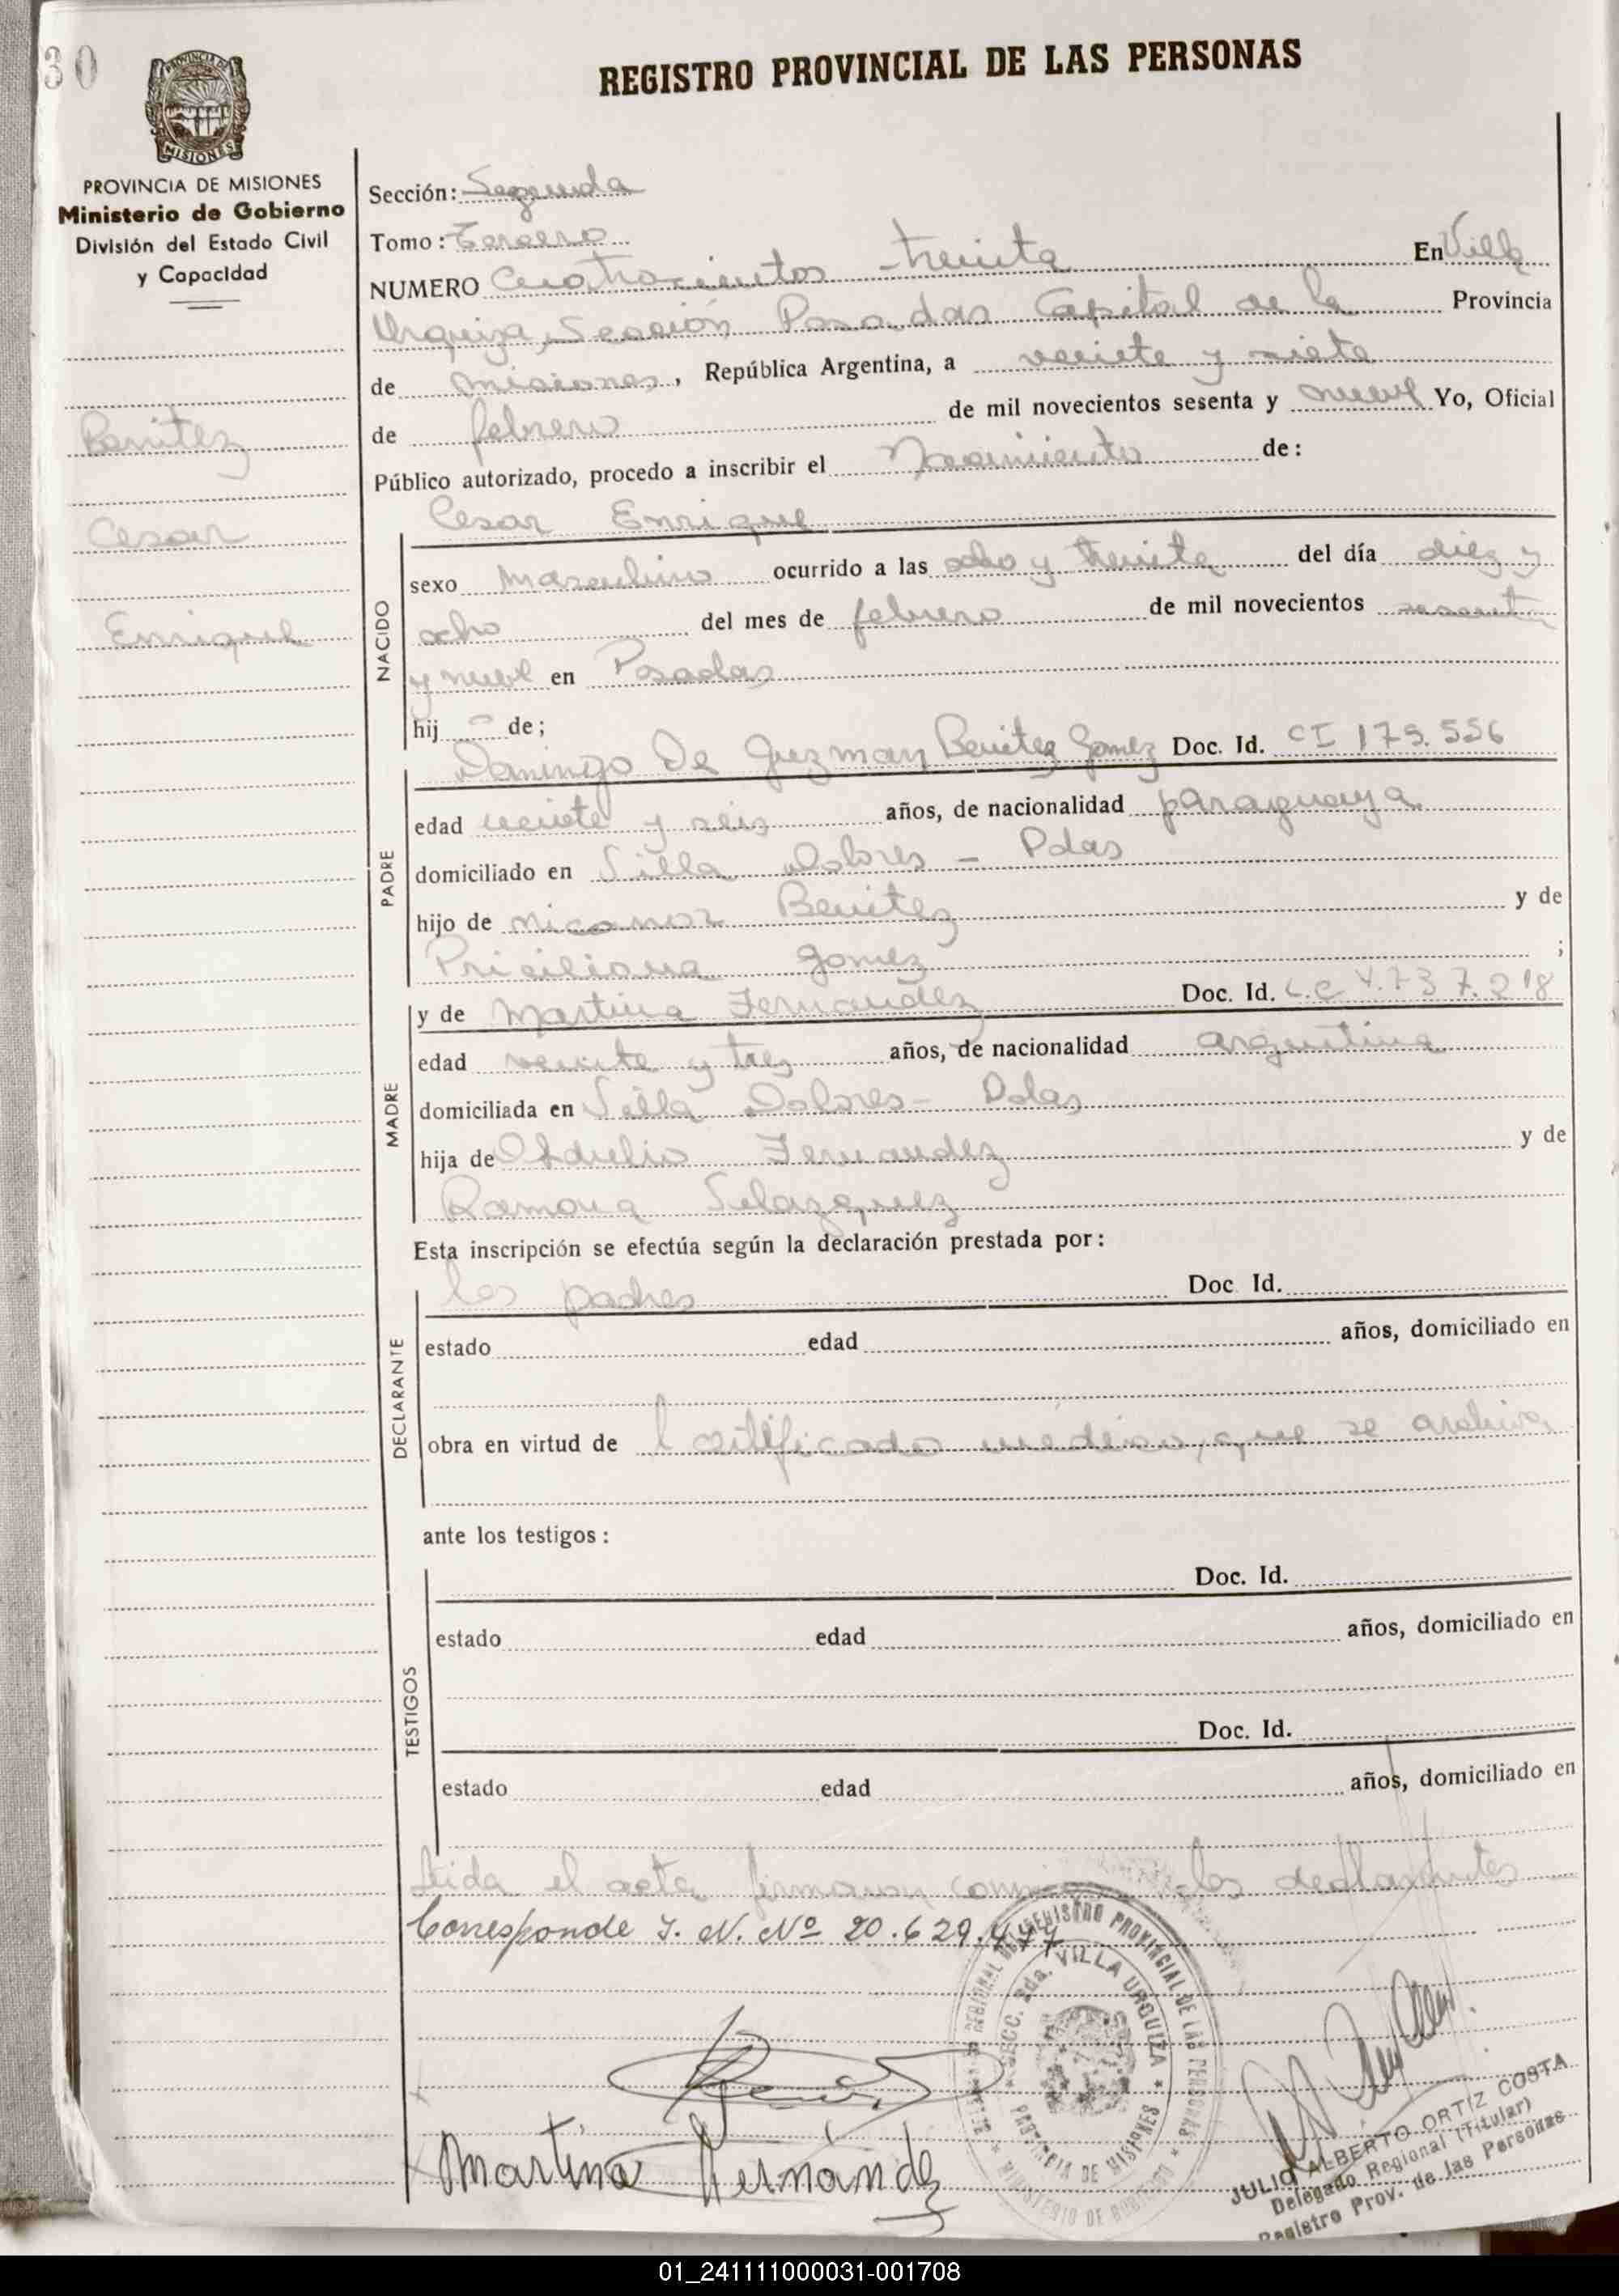 30
REGISTRO PROVINCIAL DE LAS PERSONAS
PROVINCIA DE MISIONES
MISIONES
PROVINCIA DE MISIONES
Ministerio de Gobierno
División del Estado Civil
y Capacidad
Benitez
Cesar
Enrique
Sección: Segunda
Tomo: Tercero
NUMERO Cuatrocientos treinta En Villa
Urquiza, Sección Posadas Capital de la Provincia
de Misiones, República Argentina, a veinte y siete
de febrero de mil novecientos sesenta y nueve Yo, Oficial
Público autorizado, procedo a inscribir el Nacimiento de:
Cesar Enrique
NACIDO
sexo Masculino ocurrido a las ocho y treinta del día diez y
ocho del mes de febrero de mil novecientos sesenta
y nueve en Posadas
hijo de;
Domingo De Guzman Benitez Gomez Doc. Id. CI 175.556
PADRE
edad veinte y seis años, de nacionalidad paraguaya
domiciliado en Villa Dolores - Pdas
hijo de Nicanor Benitez y de
Prisiliana Gomez ;
y de Martina Fernandez Doc. Id. L.C 4.737.218
MADRE
edad veinte y tres años, de nacionalidad argentina
domiciliada en Villa Dolores - Pdas
hija de Fernandez y de
Ramona Velazquez
Esta inscripción se efectúa según la declaración prestada por:
los padres Doc. Id.
DECLARANTE
estado edad años, domiciliado en
obra en virtud de l certificado médico, que se archiva
ante los testigos:
Doc. Id.
TESTIGOS
estado edad años, domiciliado en
Doc. Id.
estado edad años, domiciliado en
Leida el acta firmaron los declarantes
Corresponde I. N. Nº 20.629.477
REGISTRO PROVINCIAL DE LAS PERSONAS
SECC. 2da. VILLA URQUIZA
PROVINCIA DE MISIONES
MINISTERIO DE GOBIERNO
Martina Fernández
JULIO ALBERTO ORTIZ COSTA
Delegado Regional (Titular)
Registro Prov. de las Personas
01_241111000031-001708